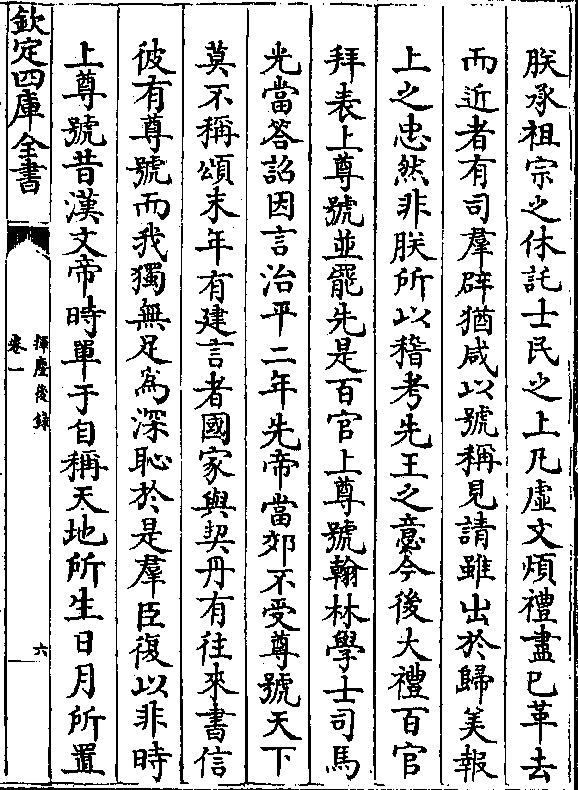 朕承祖宗之休託士民之上凡虚文煩禮盡已革去
而近者有司羣辟猶咸以號稱見請雖出於歸美報
上之忠然非朕所以稽考先王之意今後大禮百官
拜表上尊號並罷先是百官上尊號翰林學士司馬
光當答詔因言治平二年先帝當郊不受尊號天下
莫不稱頌末年有建言者國家與契丹有往來書信
彼有尊號而我獨無足為深恥於是羣臣復以非時
上尊號昔漢文帝時單于自稱天地所生日月所置
欽定四庫全書
揮麈後錄
卷一
六